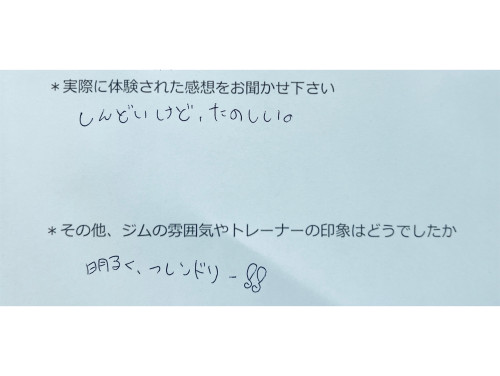 ＊実際に体験された感想をお聞かせ下さい
しんどいけど、たのしい。
＊その他、ジムの雰囲気やトレーナーの印象はどうでしたか
明るく、フレンドリー!!